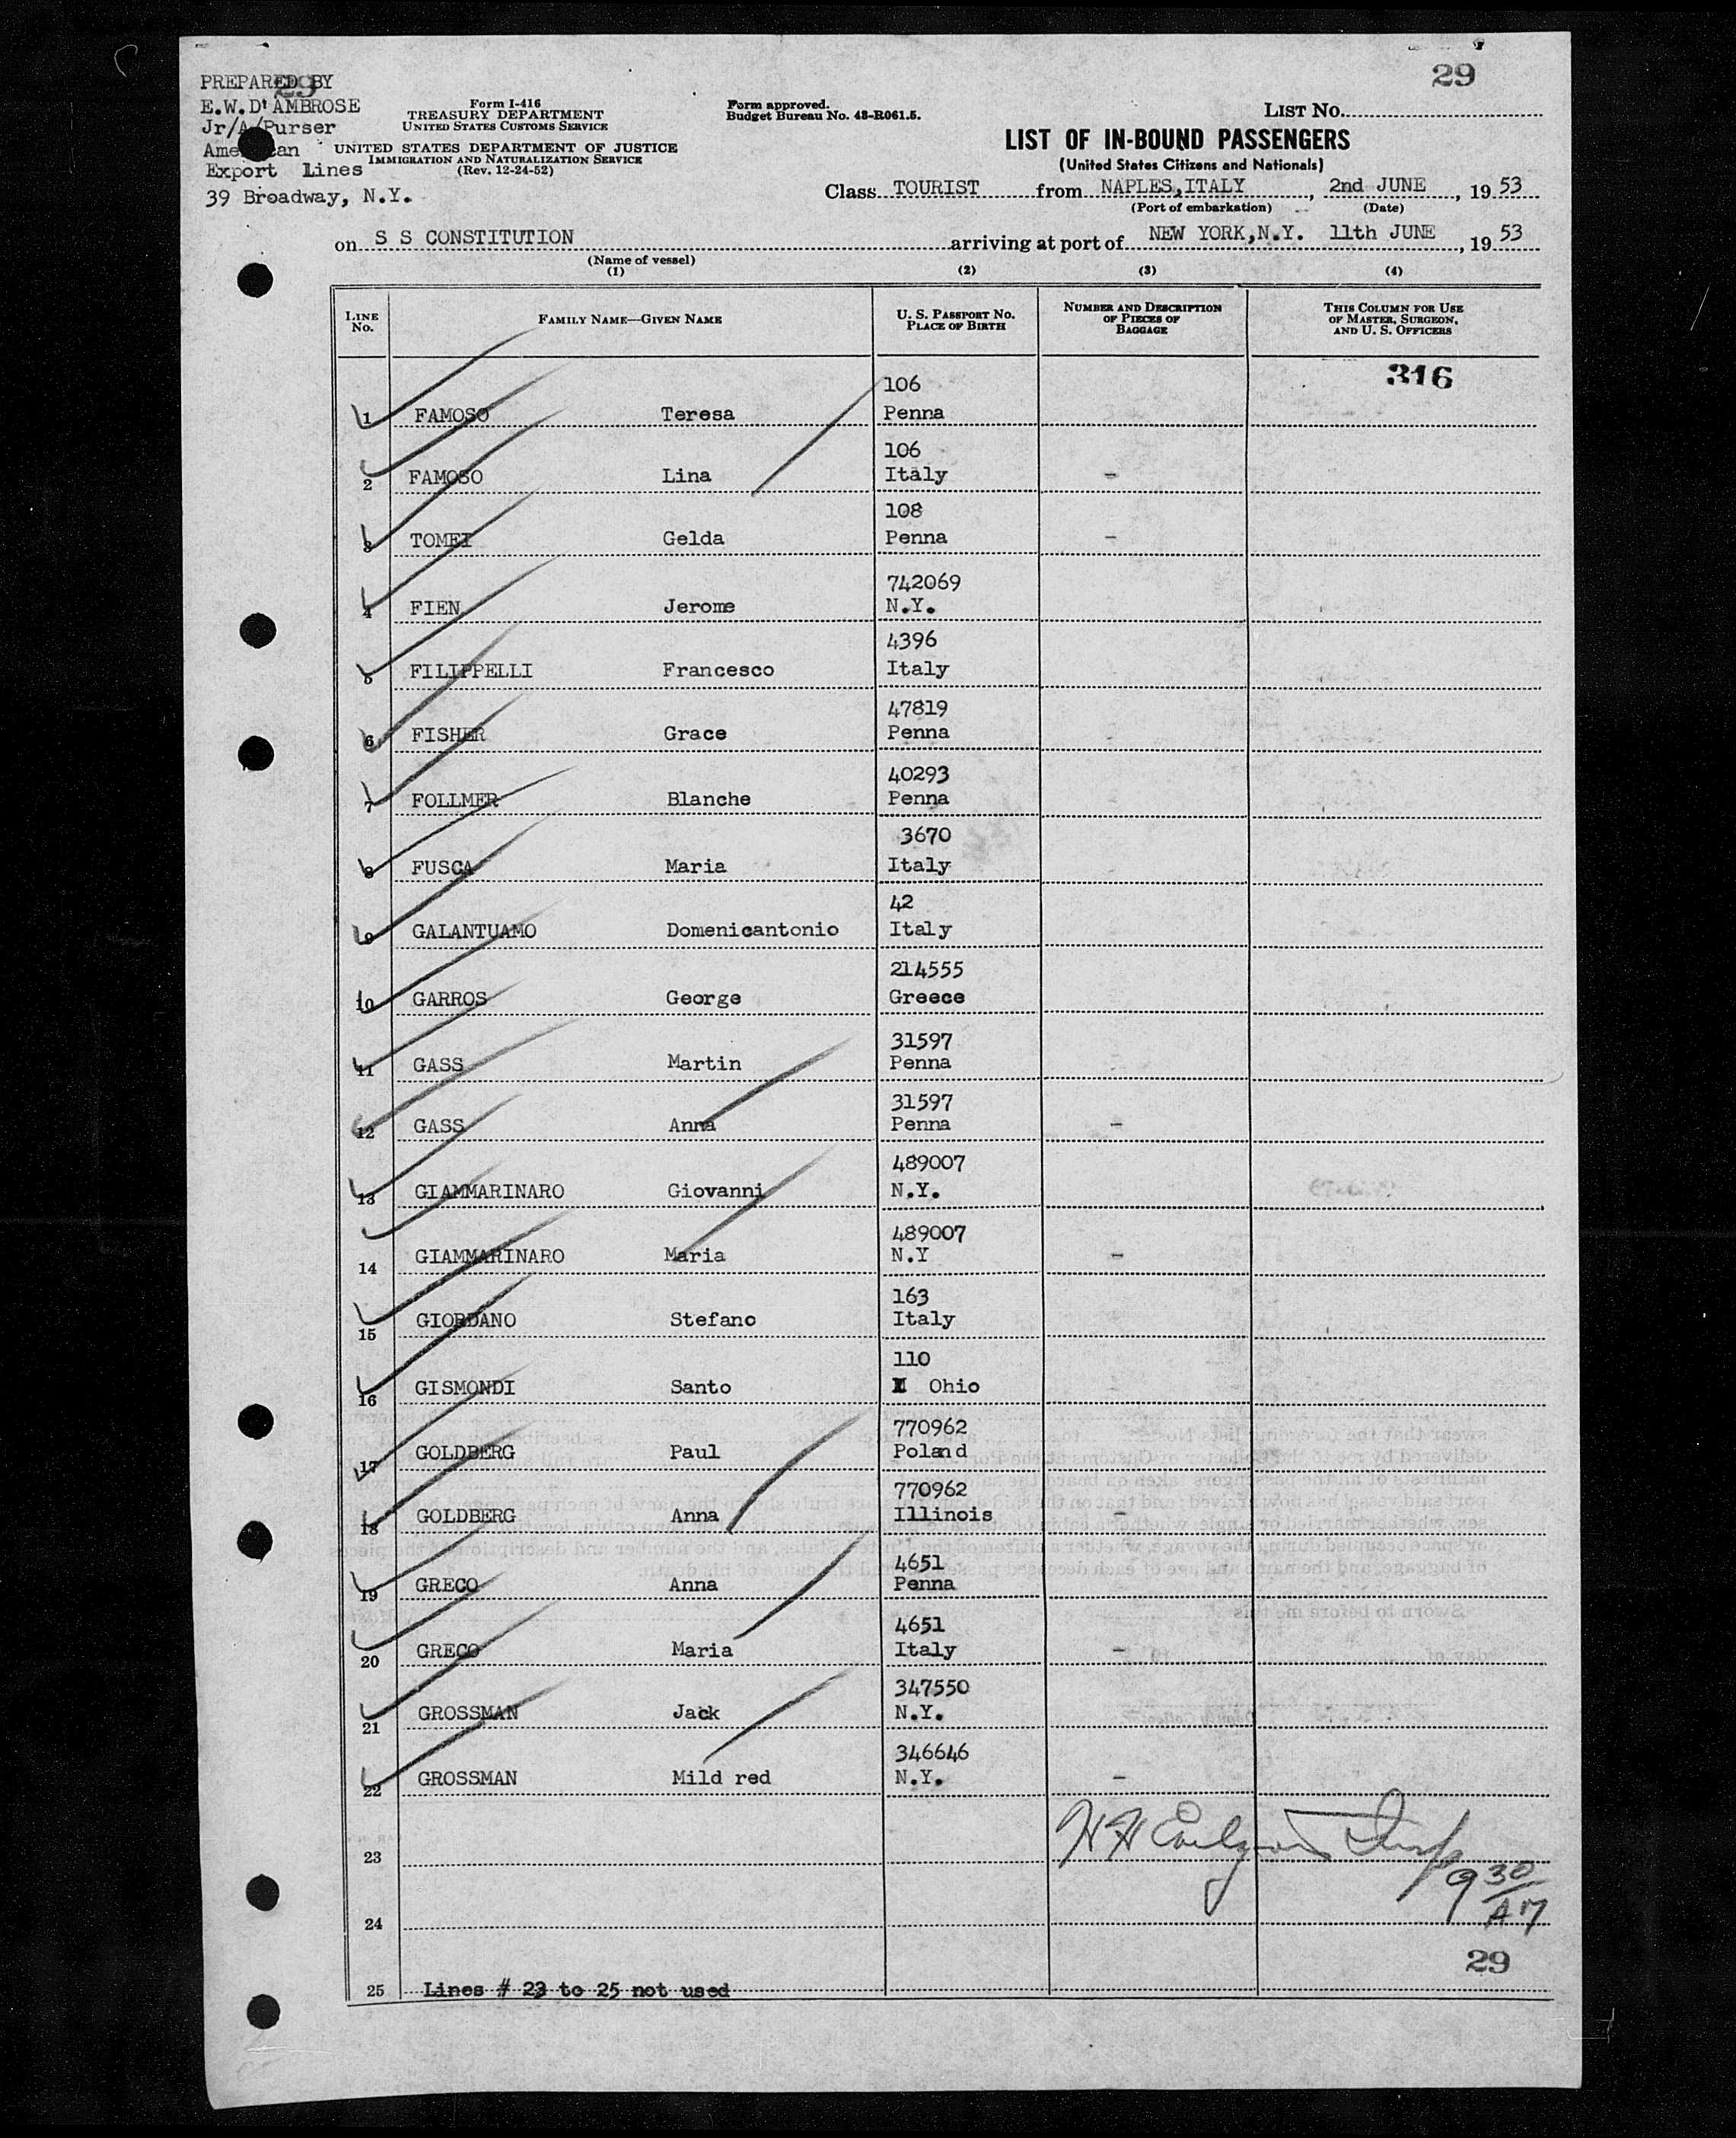 29
PREPARED BY
29
E.W.D'AMBROSE
Jr/A/Purser
Export Lines
39 Broadway, N.Y.
Form I-416
TREASURY DEPARTMENT
UNITED STATES CUSTOMS SERVICE
UNITED STATES DEPARTMENT OF JUSTICE
IMMIGRATION AND NATURALIZATION SERVICE
(Rev. 12-24-52)
Form approved.
Budget Bureau No. 43-R061.5.
LIST No.
LIST OF IN-BOUND PASSENGERS
(United States Citizens and Nationals)
Class TOURIST from NAPLES,ITALY, 2nd JUNE, 19 53
(Port of embarkation) (Date)
on S S CONSTITUTION arriving at port of NEW YORK,N.Y. 11th JUNE, 19 53
(Name of vessel)
(1) (2) (3) (4)
LINE No. FAMILY NAME—GIVEN NAME U. S. PASSPORT NO. PLACE OF BIRTH NUMBER AND DESCRIPTION OF PIECES OF BAGGAGE THIS COLUMN FOR USE OF MASTER, SURGEON, AND U. S. OFFICERS
316
106
1 FAMOSO Teresa Penna
106
2 FAMOSO Lina Italy -
108
3 TOMEI Gelda Penna -
742069
4 FIEN Jerome N.Y.
4396
5 FILIPPELLI Francesco Italy
47819
6 FISHER Grace Penna
40293
7 FOLLMER Blanche Penna
3670
8 FUSCA Maria Italy
42
9 GALANTUAMO Domenicantonio Italy
214555
10 GARROS George Greece
31597
11 GASS Martin Penna
31597
12 GASS Anna Penna -
489007
13 GIAMMARINARO Giovanni N.Y.
489007
14 GIAMMARINARO Maria N.Y -
163
15 GIORDANO Stefano Italy
110
16 GISMONDI Santo Ohio
770962
17 GOLDBERG Paul Poland
770962
18 GOLDBERG Anna Illinois -
4651
19 GRECO Anna Penna
4651
20 GRECO Maria Italy -
347550
21 GROSSMAN Jack N.Y.
346646
22 GROSSMAN Mild red N.Y. -
23
9 30 AM
24
29
25 Lines # 23 to 25 not used